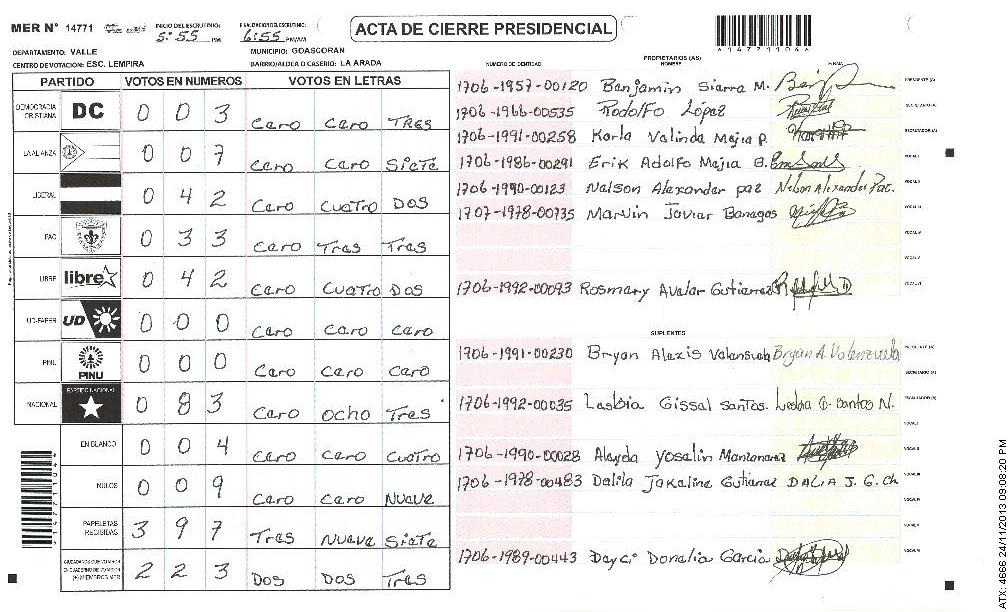 MER N° 14771 INICIO DEL ESCRUTINIO: 5:55 PM FINALIZACION ESCRUTINIO: 6:55 PM/AM
ACTA DE CIERRE PRESIDENCIAL
*147711041*
DEPARTAMENTO: VALLE MUNICIPIO: GOASCORAN
CENTRO DE VOTACION: ESC. LEMPIRA BARRIO/ALDEA O CASERIO: LA ARADA
PARTIDO VOTOS EN NUMEROS VOTOS EN LETRAS
DEMOCRACIA CRISTIANA DC 0 0 3 Cero Cero Tres
LA ALIANZA 0 0 7 Cero Cero Siete
LIBERAL 0 4 2 Cero Cuatro Dos
PAC 0 3 3 Cero Tres Tres
LIBRE libre 0 4 2 Cero Cuatro Dos
UD-FAPER UD 0 0 0 Cero Cero Cero
PINU PINU 0 0 0 Cero Cero Cero
NACIONAL PARTIDO NACIONAL 0 8 3 Cero Ocho Tres
EN BLANCO 0 0 4 Cero Cero Cuatro
NULOS 0 0 9 Cero Cero Nueve
PAPELETAS RECIBIDAS 3 9 7 Tres Nueve Siete
CIUDADANOS QUE VOTARON EN CUADERNO DE VOTACION (+) MIEMBROS MER 2 2 3 Dos Dos Tres
PROPIETARIOS (AS)
NUMERO DE IDENTIDAD NOMBRE FIRMA
1706-1957-00120 Benjamin Sierra M. PRESIDENTE (A)
1706-1966-00535 Rodolfo López SECRETARIO (A)
1706-1991-00258 Karla Valinda Mejia P. ESCRUTADOR (A)
1706-1986-00291 Erik Adolfo Mejia B. VOCAL I
1706-1990-00123 Nelson Alexander paz Nelson Alexander Paz. VOCAL II
1707-1978-00735 Marvin Javier Banegas VOCAL III
VOCAL IV
VOCAL V
1706-1992-00093 Rosmary Avelar Gutierrez VOCAL VI
SUPLENTES
1706-1991-00230 Bryan Alexis Valensuela Bryan A. Valenzuela PRESIDENTE (A)
SECRETARIO (A)
1706-1992-00035 Lesbia Gissel Santos. Lesbia G. Santos N. ESCRUTADOR (A)
VOCAL I
1706-1990-00028 Aleyda Yoselin Manzanarez VOCAL II
1706-1978-00483 Dalila Jakeline Gutierrez DALIA J. G. Ch VOCAL III
VOCAL IV
VOCAL V
1706-1989-00443 Deyci Donelia Garcia VOCAL VI
*147711041*
ATX: 4666 24/11/2013 09:08:20 PM